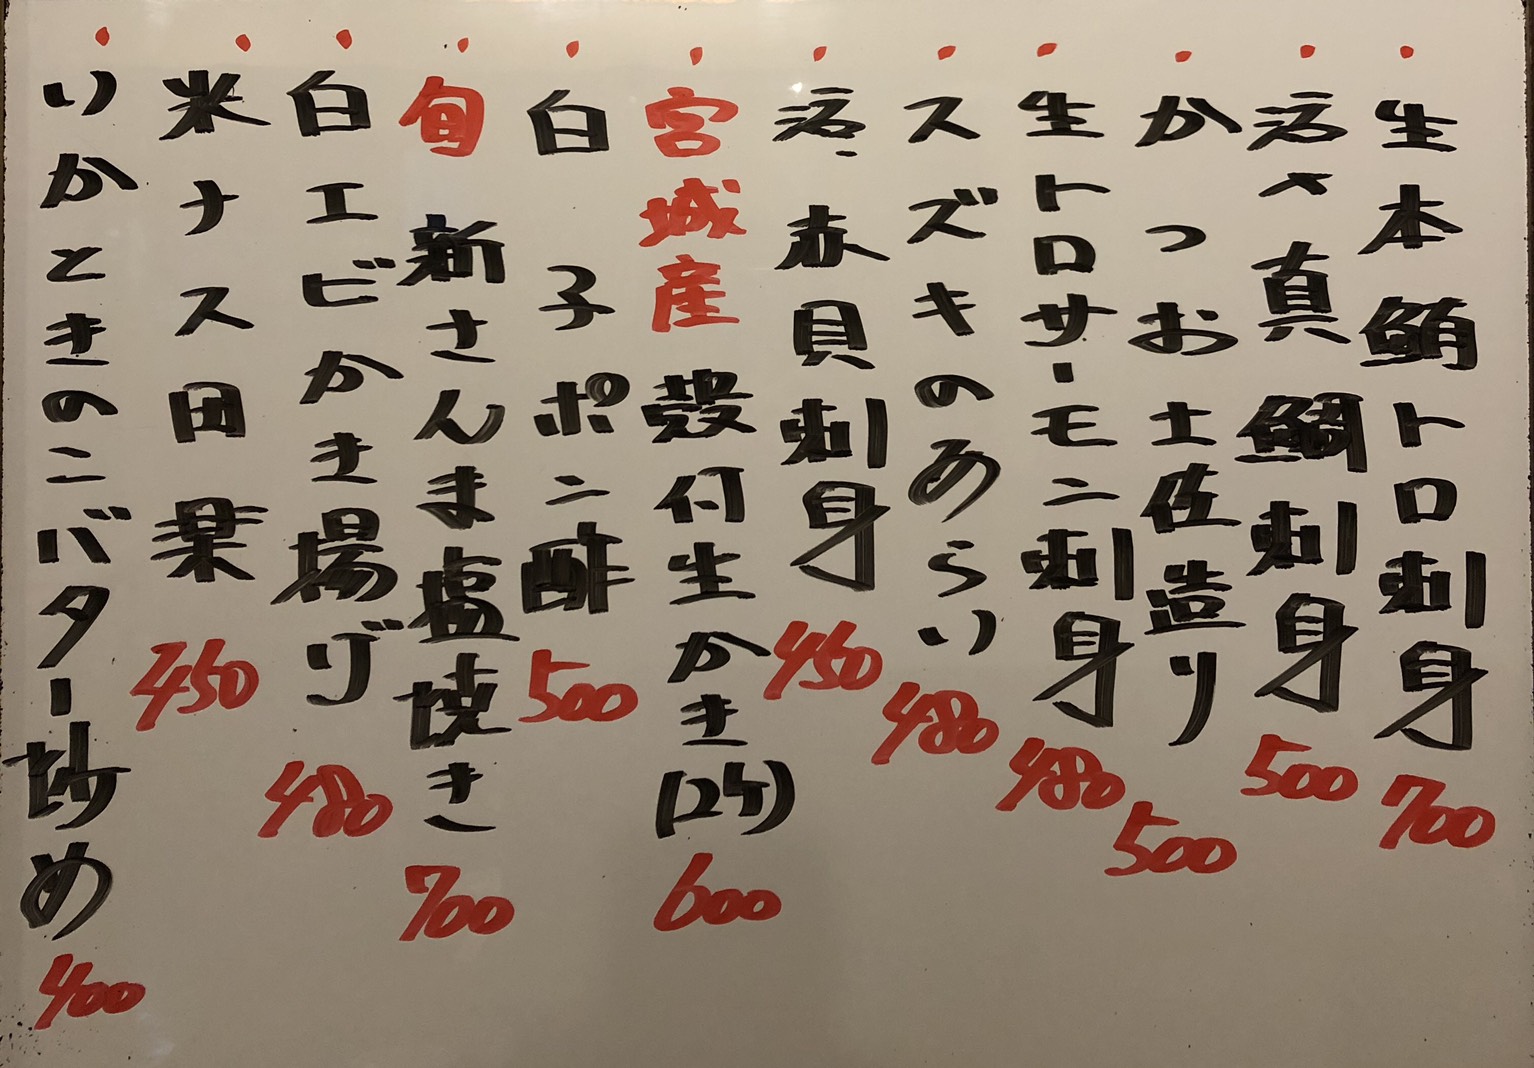 生本鮪トロ刺身 700
活〆真鯛刺身 500
かつお土佐造り 500
生トロサーモン刺身 480
スズキのあらい 480
活〆赤貝刺身 450
宮城産 殻付生かき(2ケ) 600
白子ポン酢 500
旬 新さんま塩焼き 700
白エビかき揚げ 480
米ナス田楽 450
いかときのこバター炒め 400